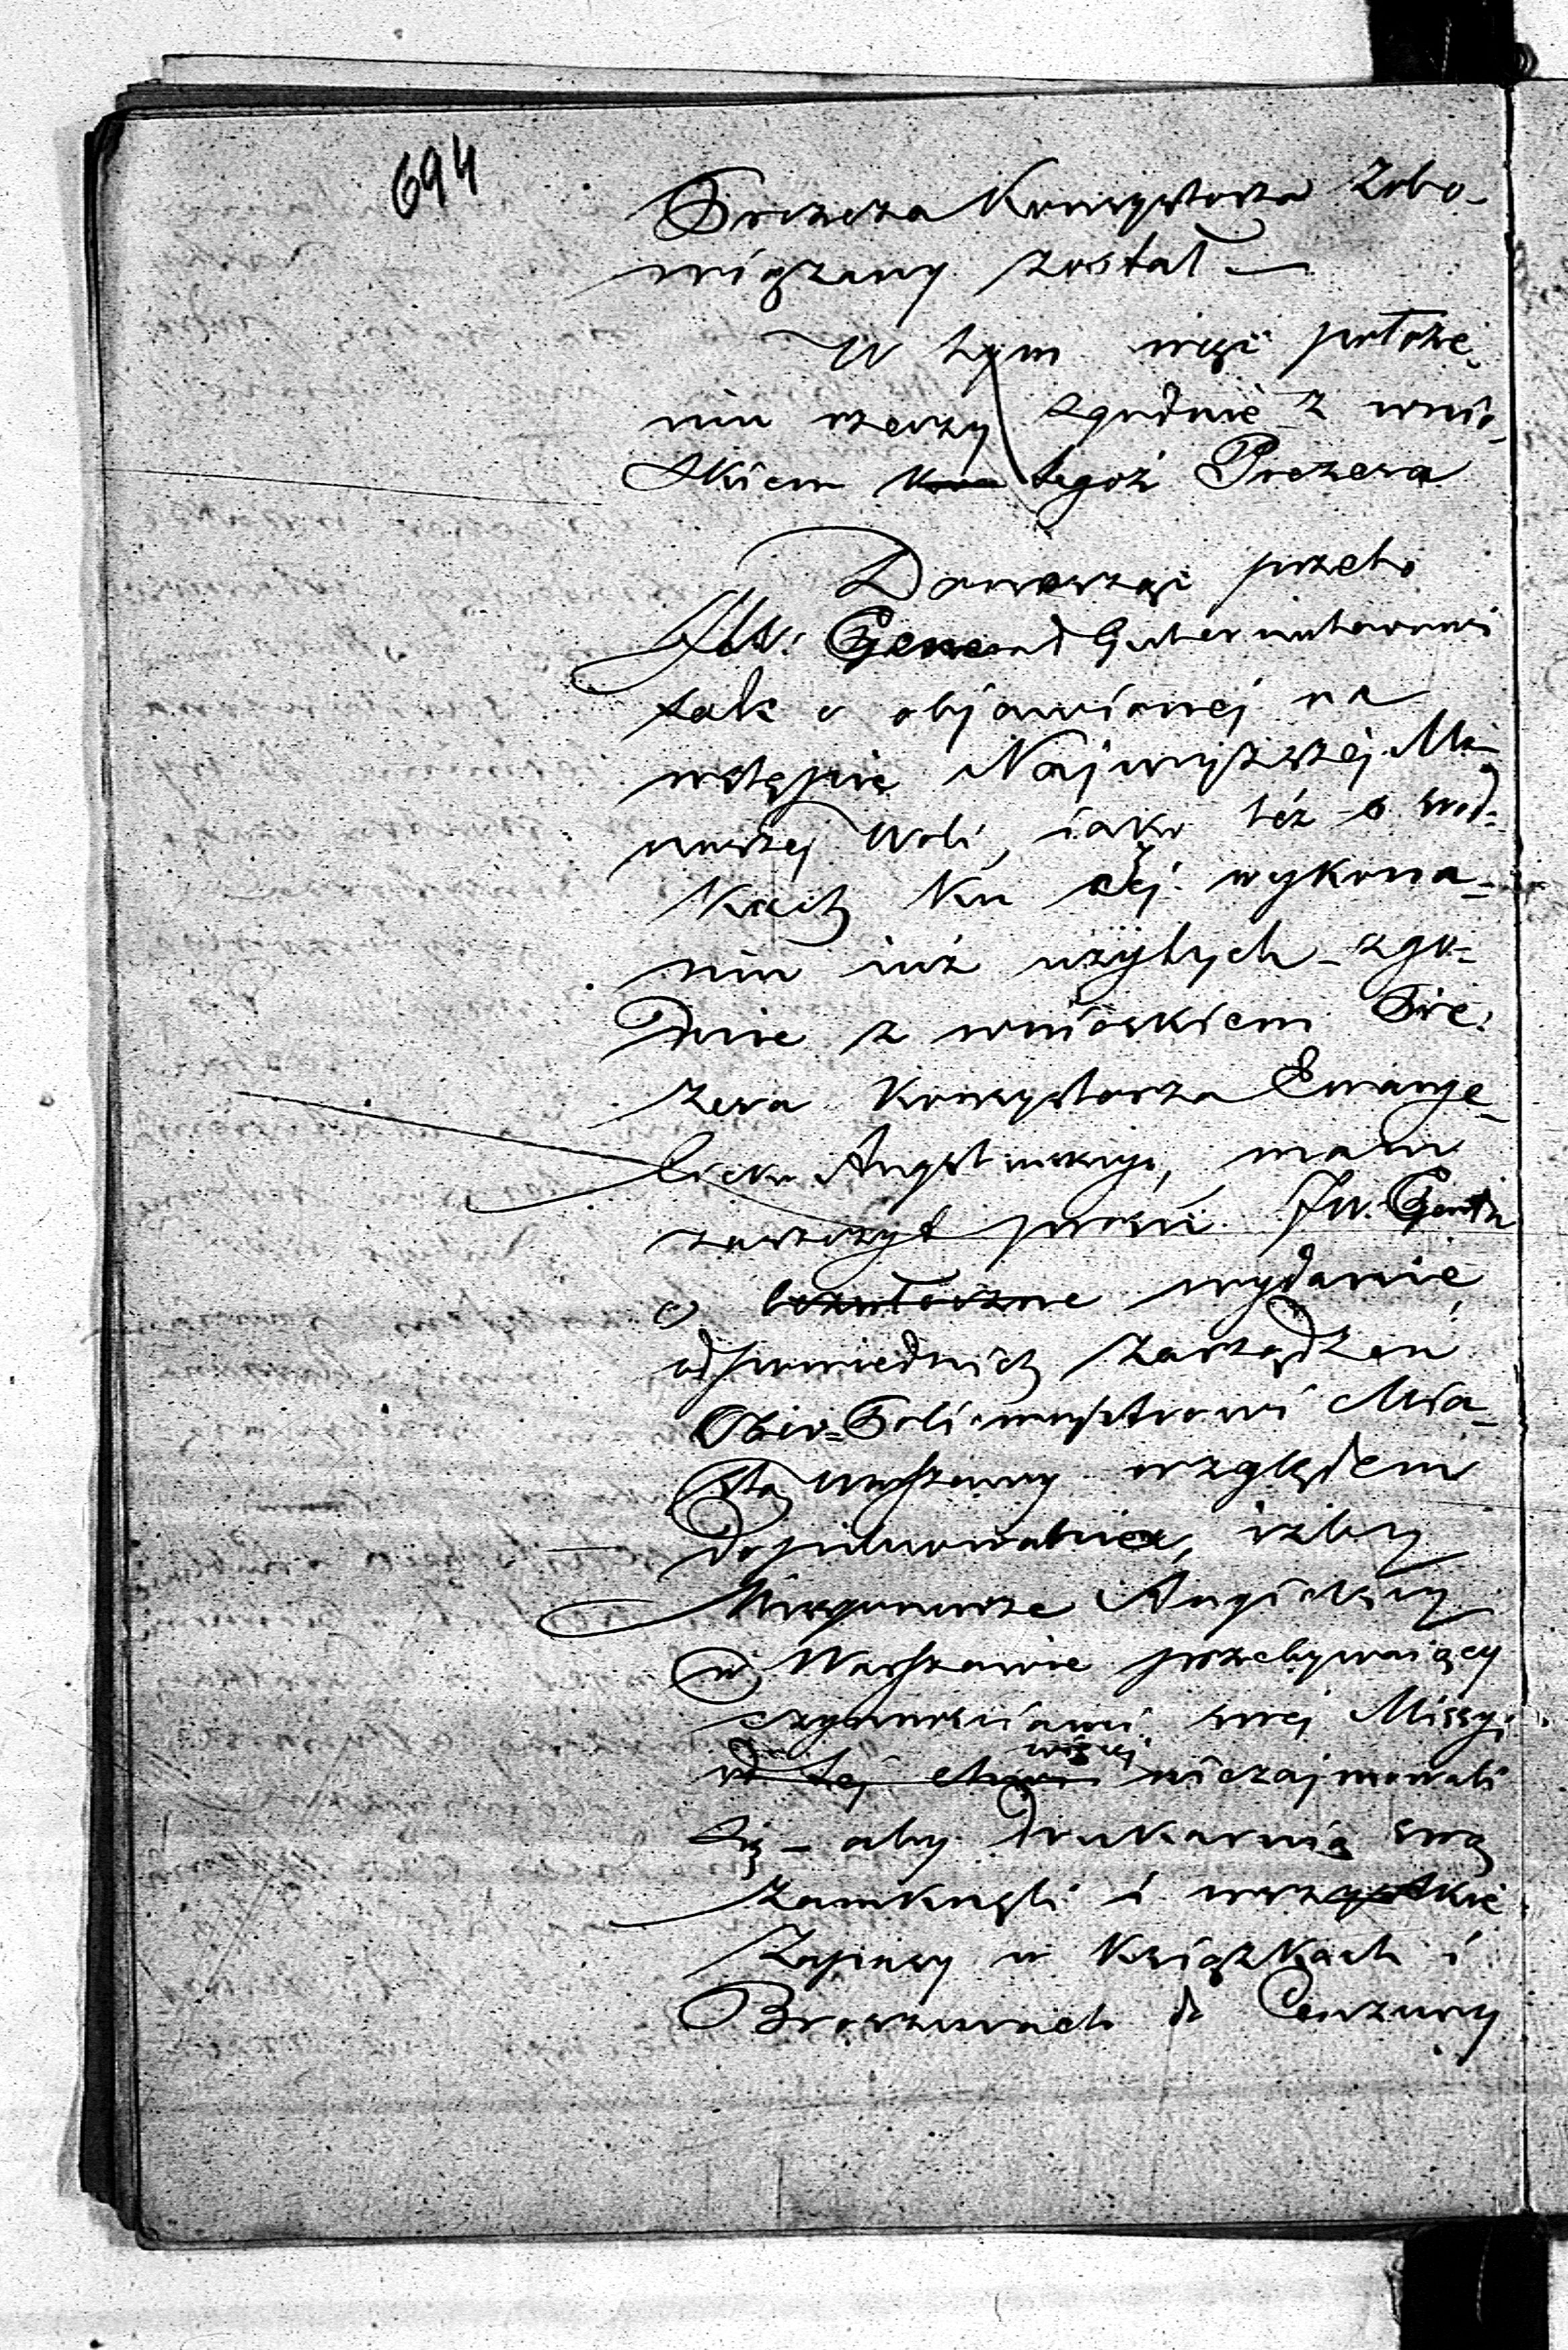 694
Prezesa Konsystorza Zobo-
wiązany został —
W tym więc położe-
niu rzeczy zgodnie z wnio-
skiem tegoż Prezesa
Donosząc przeto
JW. Generał Gubernatorowi
tak o objawionej na
wstępie Najwyższej Mo-
narszej Woli, iako też o środ-
kach ku Jej wykona-
niu iuż użytych – zgo-
dnie z wnioskiem Pre-
zesa Konsystorza Ewange-
licko Augsburskiego, mam
zaszczyt prosić JW. Genła
o bezwłoczne wydanie
odpowiednich Zarządzeń
Ober-Policmajstrowi Mia-
sta Warszawy względem
dopilnowania, iżby
Missyonarze Angielscy
w Warszawie przebywaiący
czynnościami swej Missyi
od tej chwili więcej niezajmowali
się – aby drukarnię swą
zamknęli i wszystkie
Zapasy w książkach i
Broszurach do Cenzury